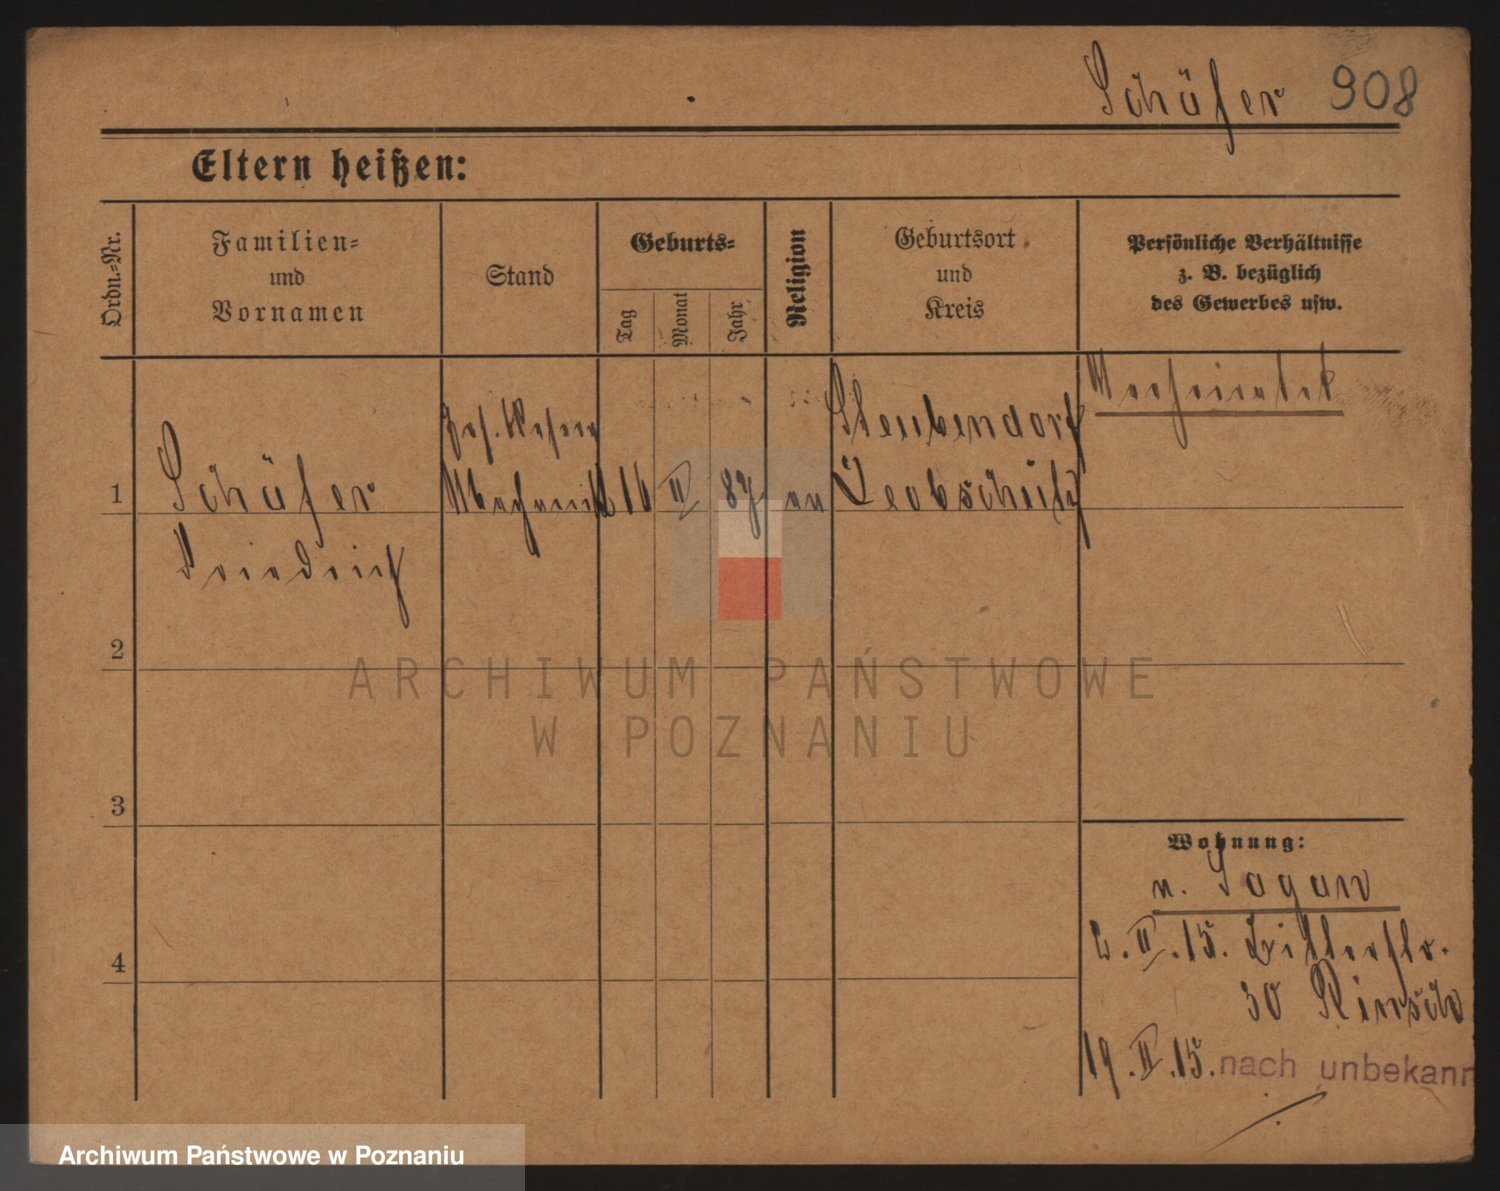 Schäfer 908
Eltern heißen:
Ordn.-Nr.
Familien-
und
Vornamen
Stand
Geburts-
Tag
Monat
Jahr
Religion
Geburtsort
und
Kreis
Persönliche Verhältnisse
z. B. bezüglich
des Gewerbes usw.
1
Schäfer
Friedrich
Mechanik
II
87
Steubendorf
Leobschütz
2
3
4
Wohnung:
n. Sagan
2. II. 15. Ritterstr.
30
19. II. 15. nach unbekann
ARCHIWUM PAŃSTWOWE
W POZNANIU
Archiwum Państwowe w Poznaniu